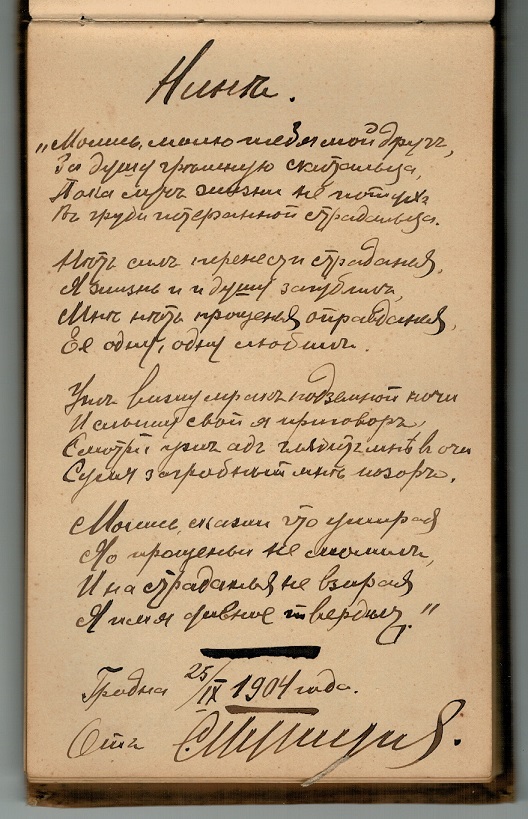 Нинѣ.
„Молись, молю тебя мой другъ,
За душу грѣшную скитальца,
Пока лучъ жизни не потухъ
Въ груди истерзанной страдальца.
Нѣтъ силъ перенести страданья,
Я жизнь и и душу загубилъ,
Мнѣ нѣтъ прощенья оправданья,
Ее одну, одну любилъ.
Ужъ вижу мракъ подземной ночи
И слышу свой я приговоръ,
Смотри ужъ адъ глядитъ мнѣ в очи
Суля загробный мнѣ позоръ.
Молись, скажи что умирая
Я о прощеньи не молилъ,
И на страданья не взирая
Я имя дивное твердилъ."
Гродна 25/IX 1904 года.
Отъ